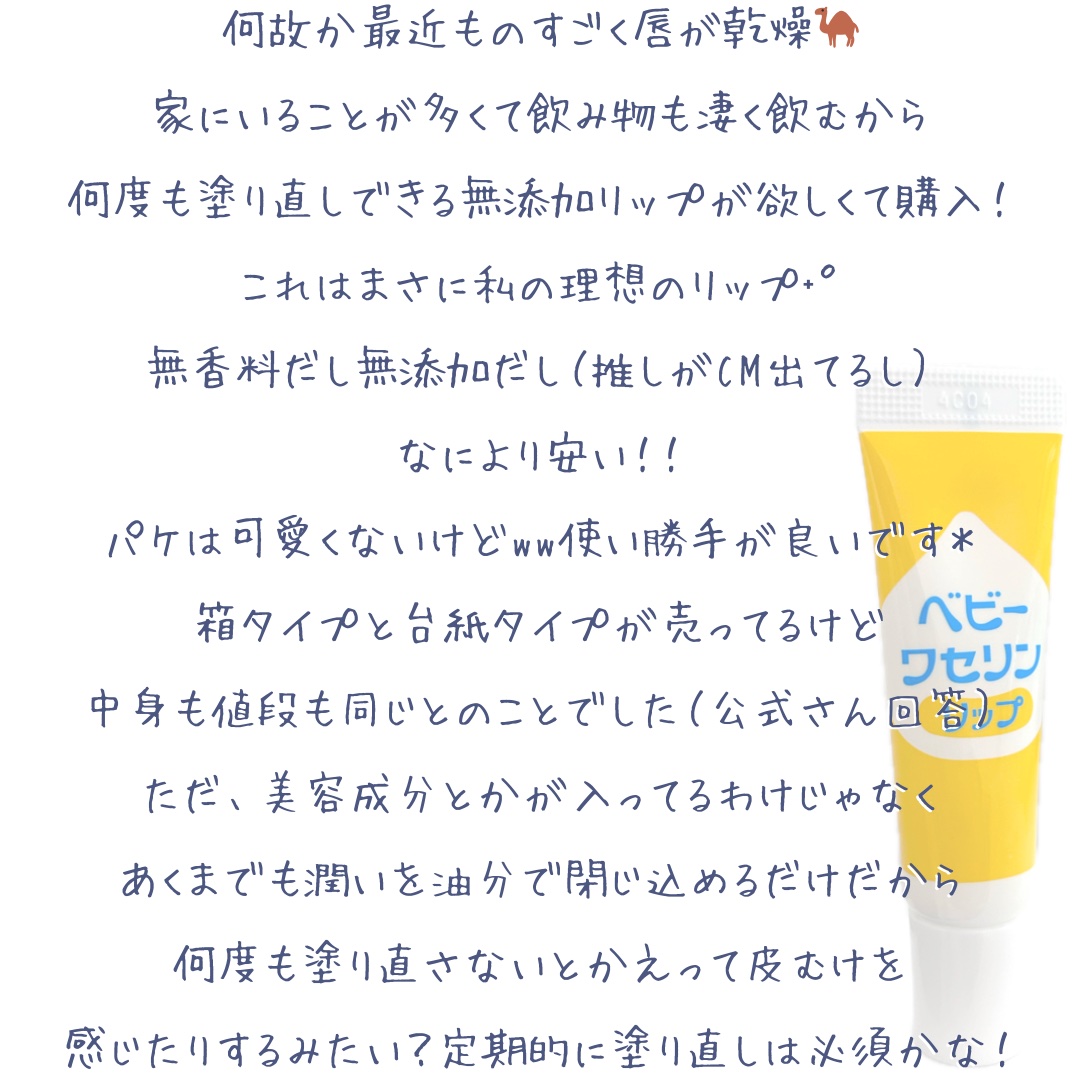 何故か最近ものすごく唇が乾燥🐪
家にいることが多くて飲み物も凄く飲むから
何度も塗り直しできる無添加リップが欲しくて購入!
これはまさに私の理想のリップ˖°
無香料だし無添加だし(推しがCM出てるし)
4C04
なにより安い!!
パケは可愛くないけどww使い勝手が良いです*
箱タイプと台紙タイプが売ってるけど
ベビー
ワセリン
リップ
中身も値段も同じとのことでした(公式さん回答)
ただ、美容成分とかが入ってるわけじゃなく
あくまでも潤いを油分で閉じ込めるだけだから
何度も塗り直さないとかえって皮むけを
感じたりするみたい?定期的に塗り直しは必須かな!